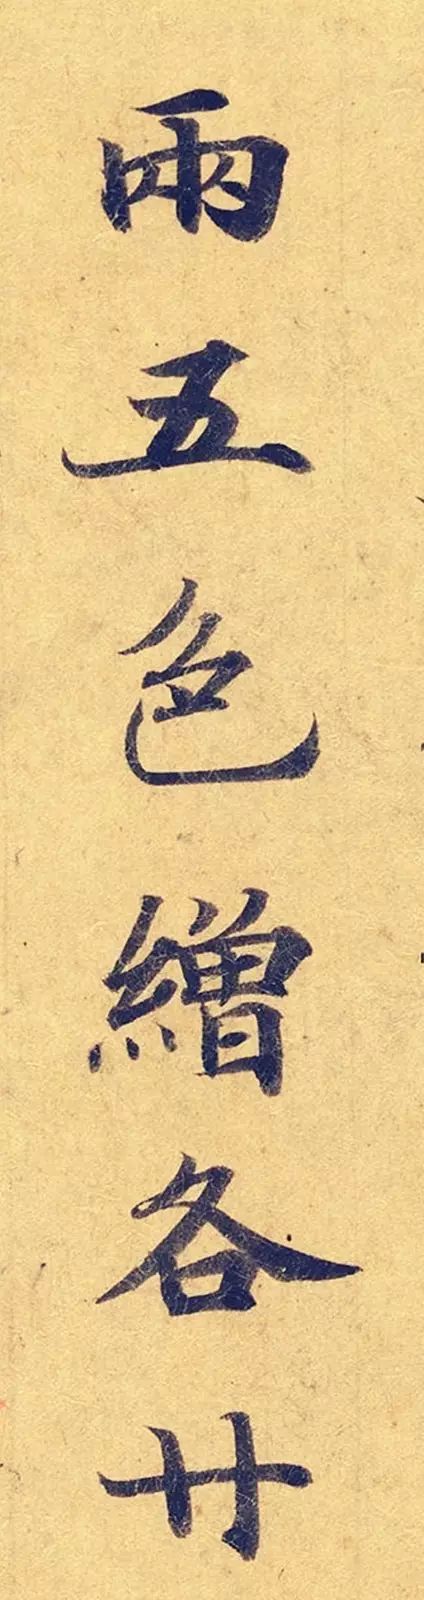 兩五色繒各廿